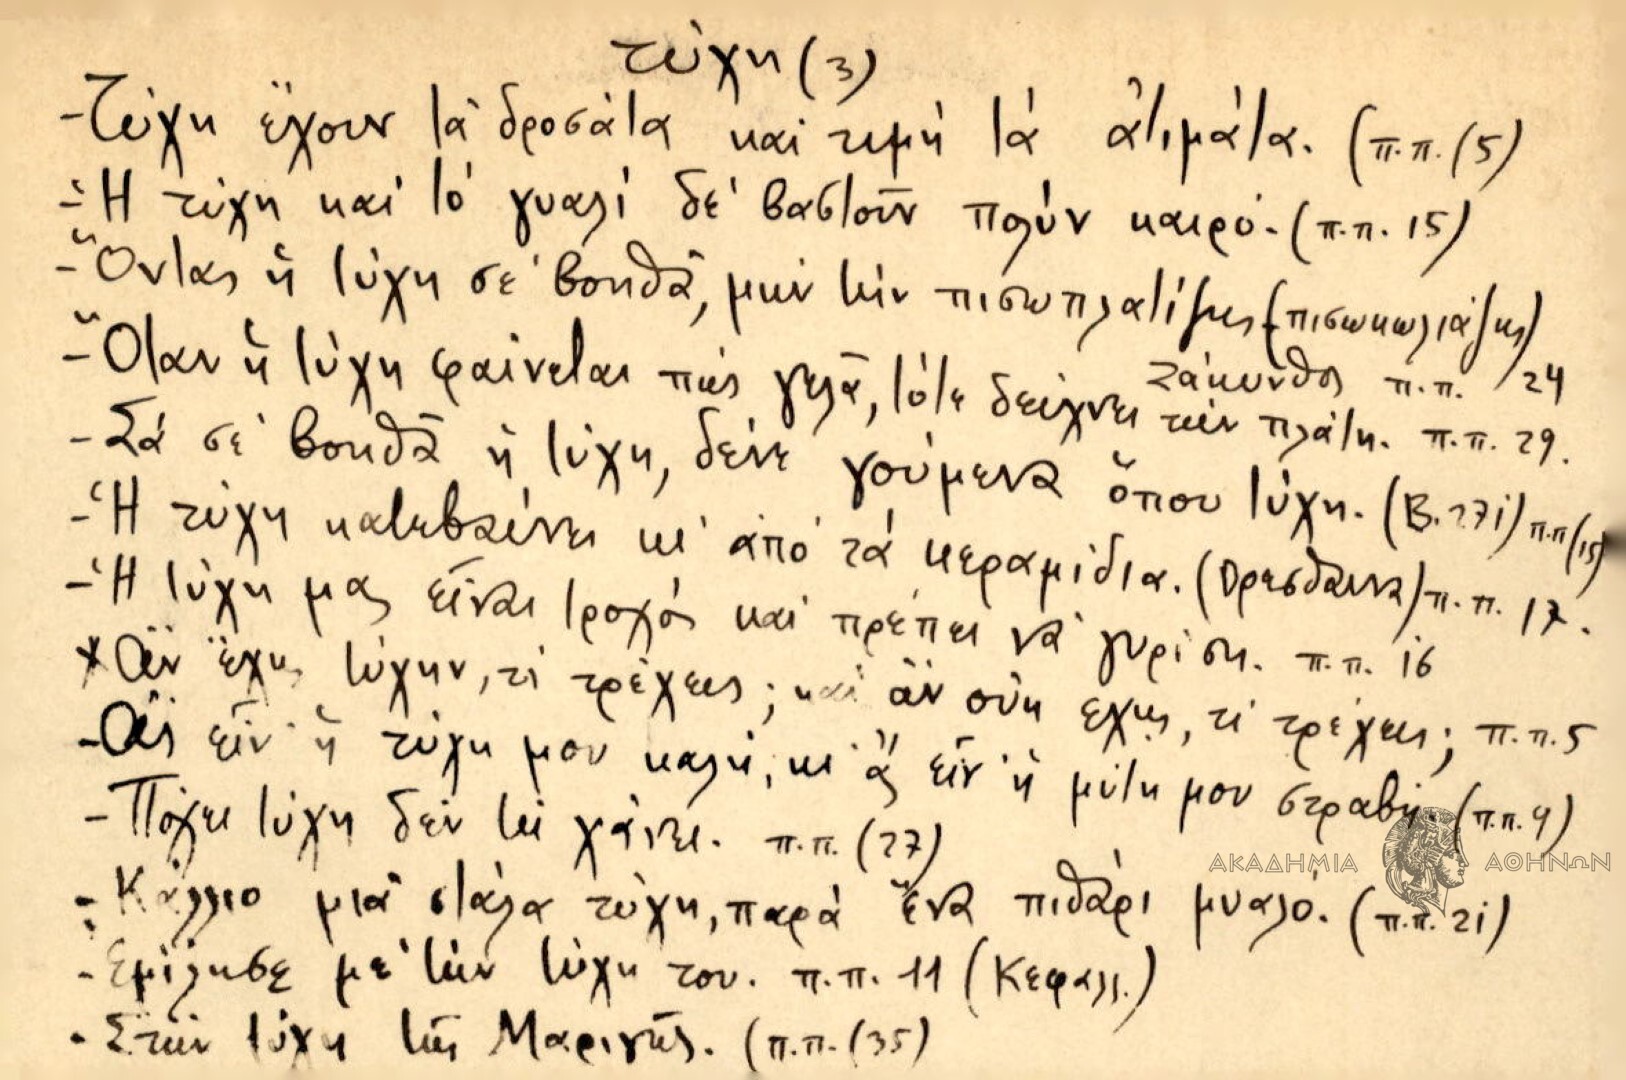 τύχη (3)
- Τύχη ἔχουν τὰ δροσάτα καὶ τιμὴ τὰ ἀτιμάτα. (π.π. (5)
- Ἡ τύχη καὶ τὸ γυαλὶ δὲ βαστοῦν πολὺν καιρό. (π.π. 15)
- Ὅντας ἡ τύχη σὲ βοηθᾶ, μὴν τὴν πισωπλατίζῃς (πισωκωλιάζῃς)
Ζάκυνθος π.π. 24
- Ὅταν ἡ τύχη φαίνεται πὼς γελᾶ, τότε δείχνει τὴν πλάτη. π.π. 29.
- Σὰ σὲ βοηθᾶ ἡ τύχη, δένε γούμενα ὅπου τύχη. (Β. 271) π.π (15)
- Ἡ τύχη κατεβαίνει κι' ἀπὸ τὰ κεραμίδια. (Ὀρεσθαινα) π.π. 17.
- Ἡ τύχη μας εἶναι τροχὸς καὶ πρέπει νὰ γυρίσῃ. π.π. 16
x Ἂν ἔχῃς τύχην, τί τρέχεις; καὶ ἂν οὐκ ἔχῃς, τί τρέχεις; π.π. 5
- Ἂς εἶν' ἡ τύχη μου καλή, κι' ἂς εἶν' ἡ μύτη μου στραβή. (π.π. 9)
- Πὄχει τύχη δὲν τὴ χάνει. π.π. (27)
- Κάλλιο μιὰ στάλα τύχη, παρὰ ἕνα πιθάρι μυαλό. (π.π. 21)
- Ἐμίλησε μὲ τὴν τύχη του. π.π. 11 (Κεφαλλ.)
- Στὴν τύχη τῆς Μαριγῆς. (π.π. (35)
ΑΚΑΔΗΜΙΑ ΑΘΗΝΩΝ